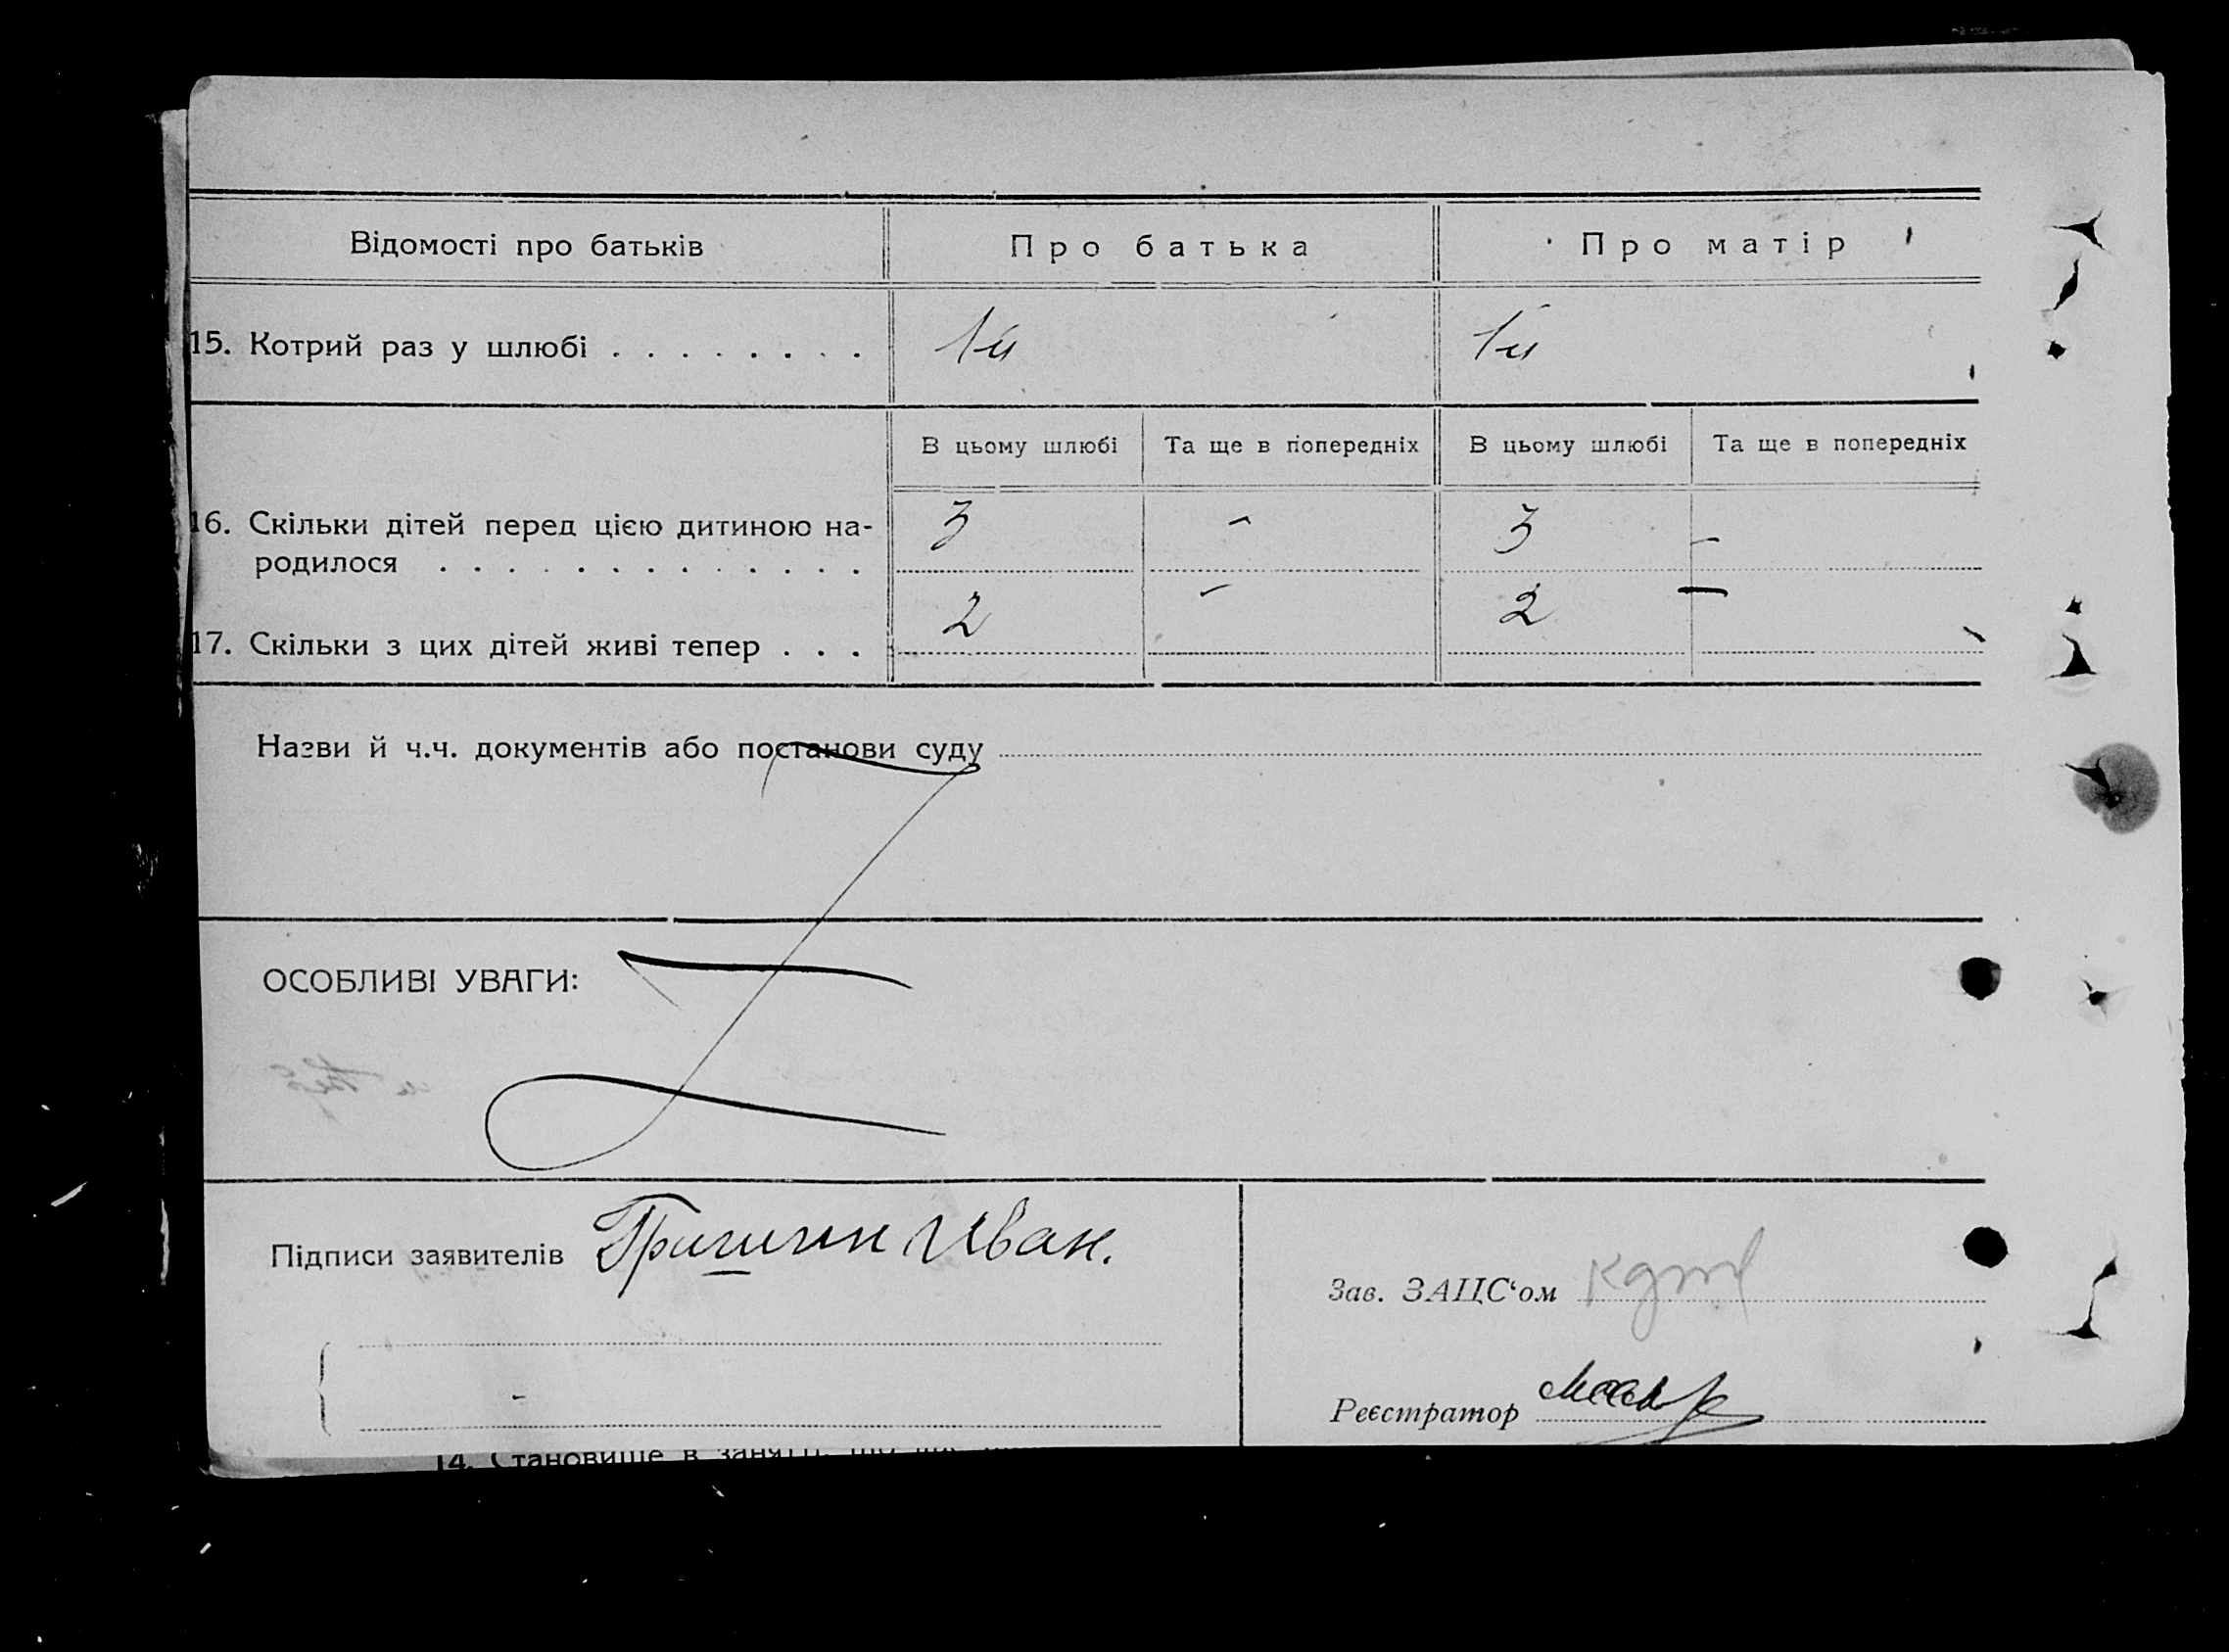 Відомості про батьків Про батька Про матір
15. Котрий раз у шлюбі . . . . . . . . 1й 1й
В цьому шлюбі Та ще в попередніх В цьому шлюбі Та ще в попередніх
16. Скільки дітей перед цією дитиною на-
родилося . . . . . . . . . . . . . . 3 - 3 -
17. Скільки з цих дітей живі тепер . . . 2 - 2 -
Назви й ч.ч. документів або постанови суду
ОСОБЛИВІ УВАГИ:
Підписи заявителів Гришин Иван.
Зав. ЗАЦС‘ом
Реєстратор
14. Становище в занятті, що